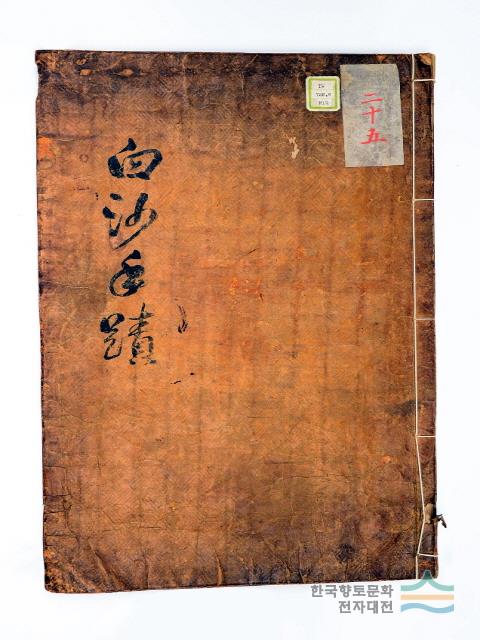 白沙手蹟
二十五
한국향토문화
전자대전